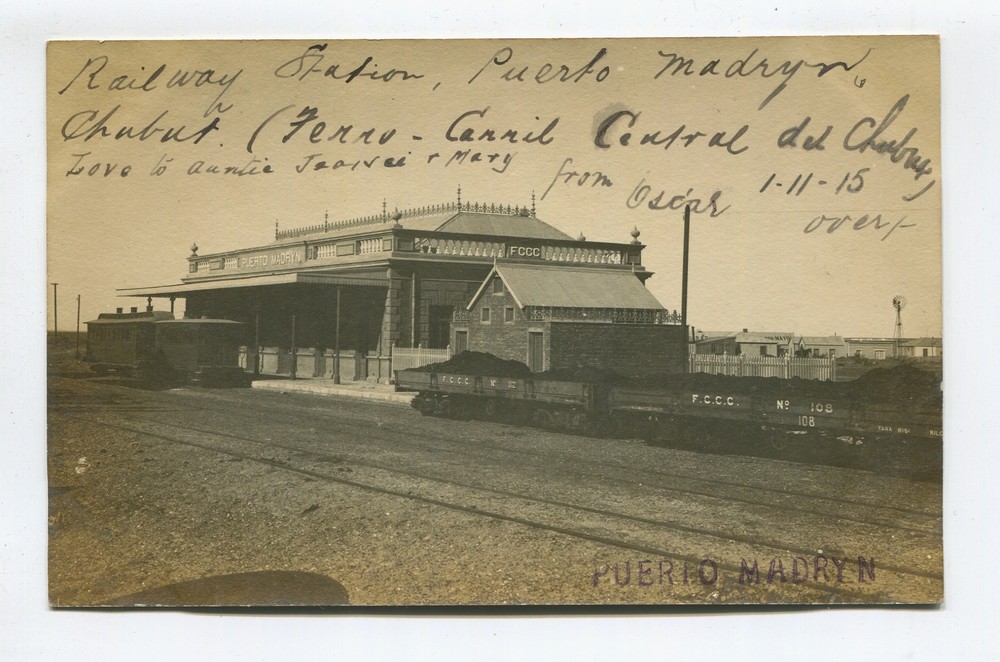 Railway Station, Puerto Madryn,
Chubut. (Ferro-Carril Central del Chubut)
Love to Auntie & Mary from Oscar 1-11-15
over/-
PUERTO MADRYN
FCCC
F.C.C.C. Nº
F.C.C.C. Nº 108
108
TARA KILO
PUERTO MADRYN